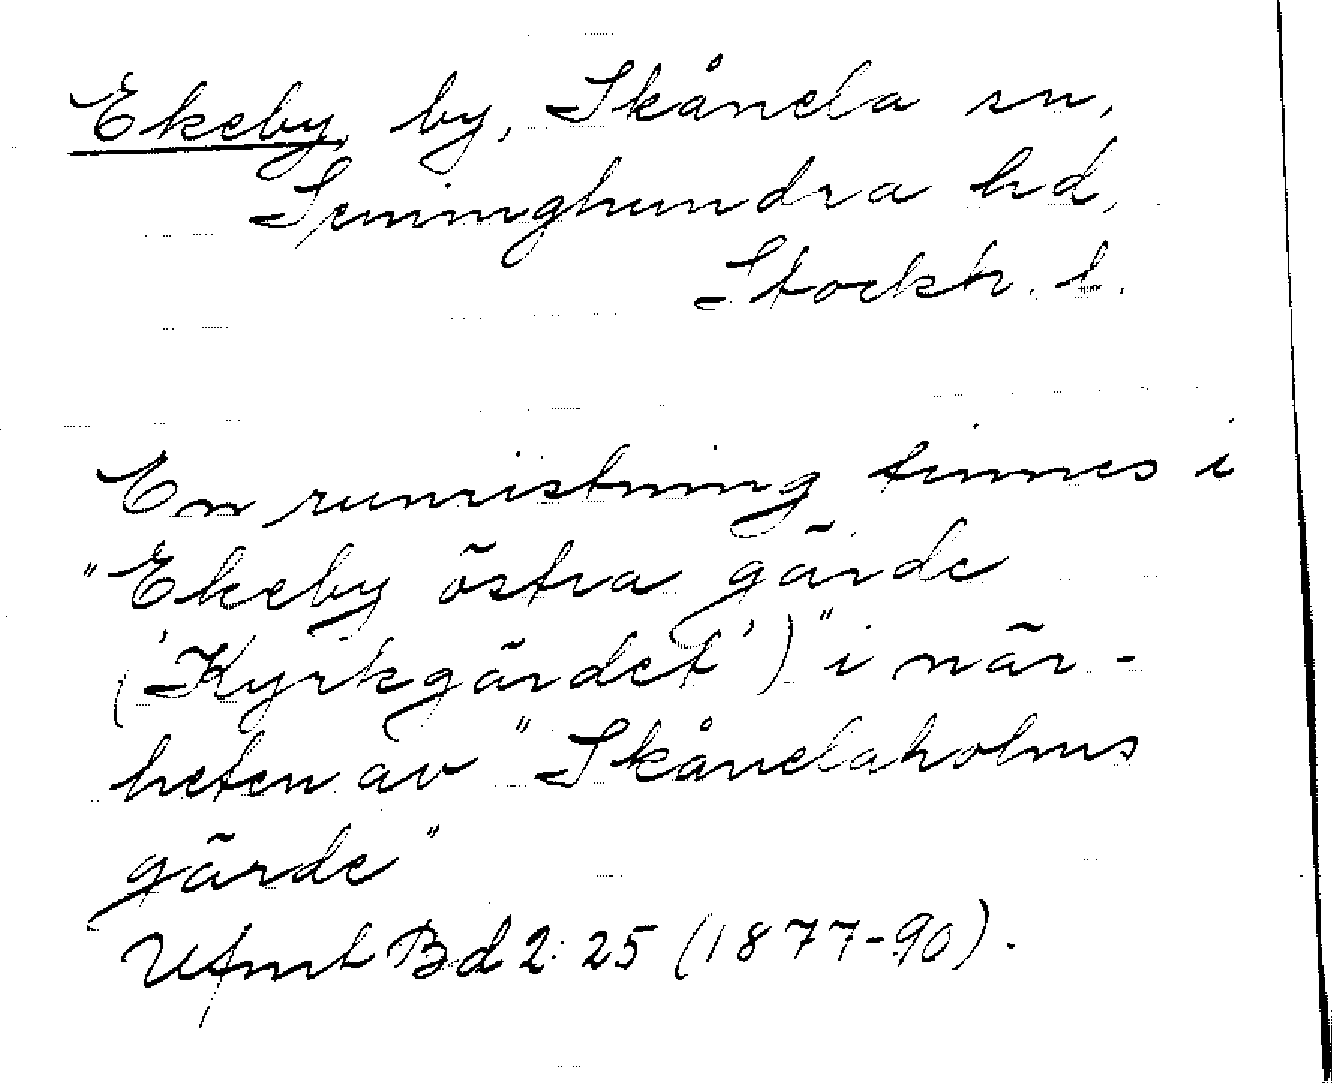 Ekeby, by, Skånela sn,
Seminghundra hd,
Stockh. l.
En runristning finnes i
"Ekeby östra gärde
('Kyrkgärdet')" i när-
heten av "Skånelaholms
gärde"
Ufmt Bd 2: 25 (1877-90).